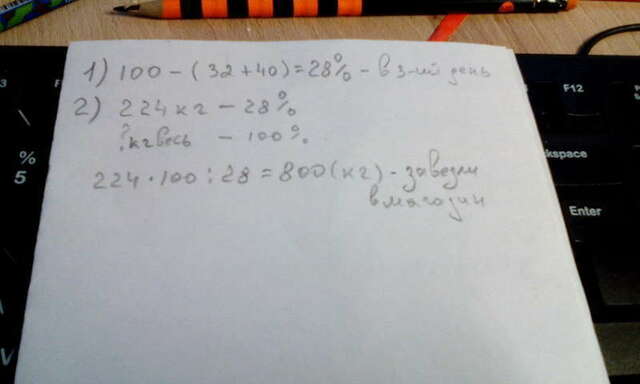 1) 100 - (32+40)=28% - в 3-ий день
2) 224 кг - 28%
? кг весь - 100%
224·100:28=800(кг) - завезли
в магазин
%
5
F12
kspace
Enter